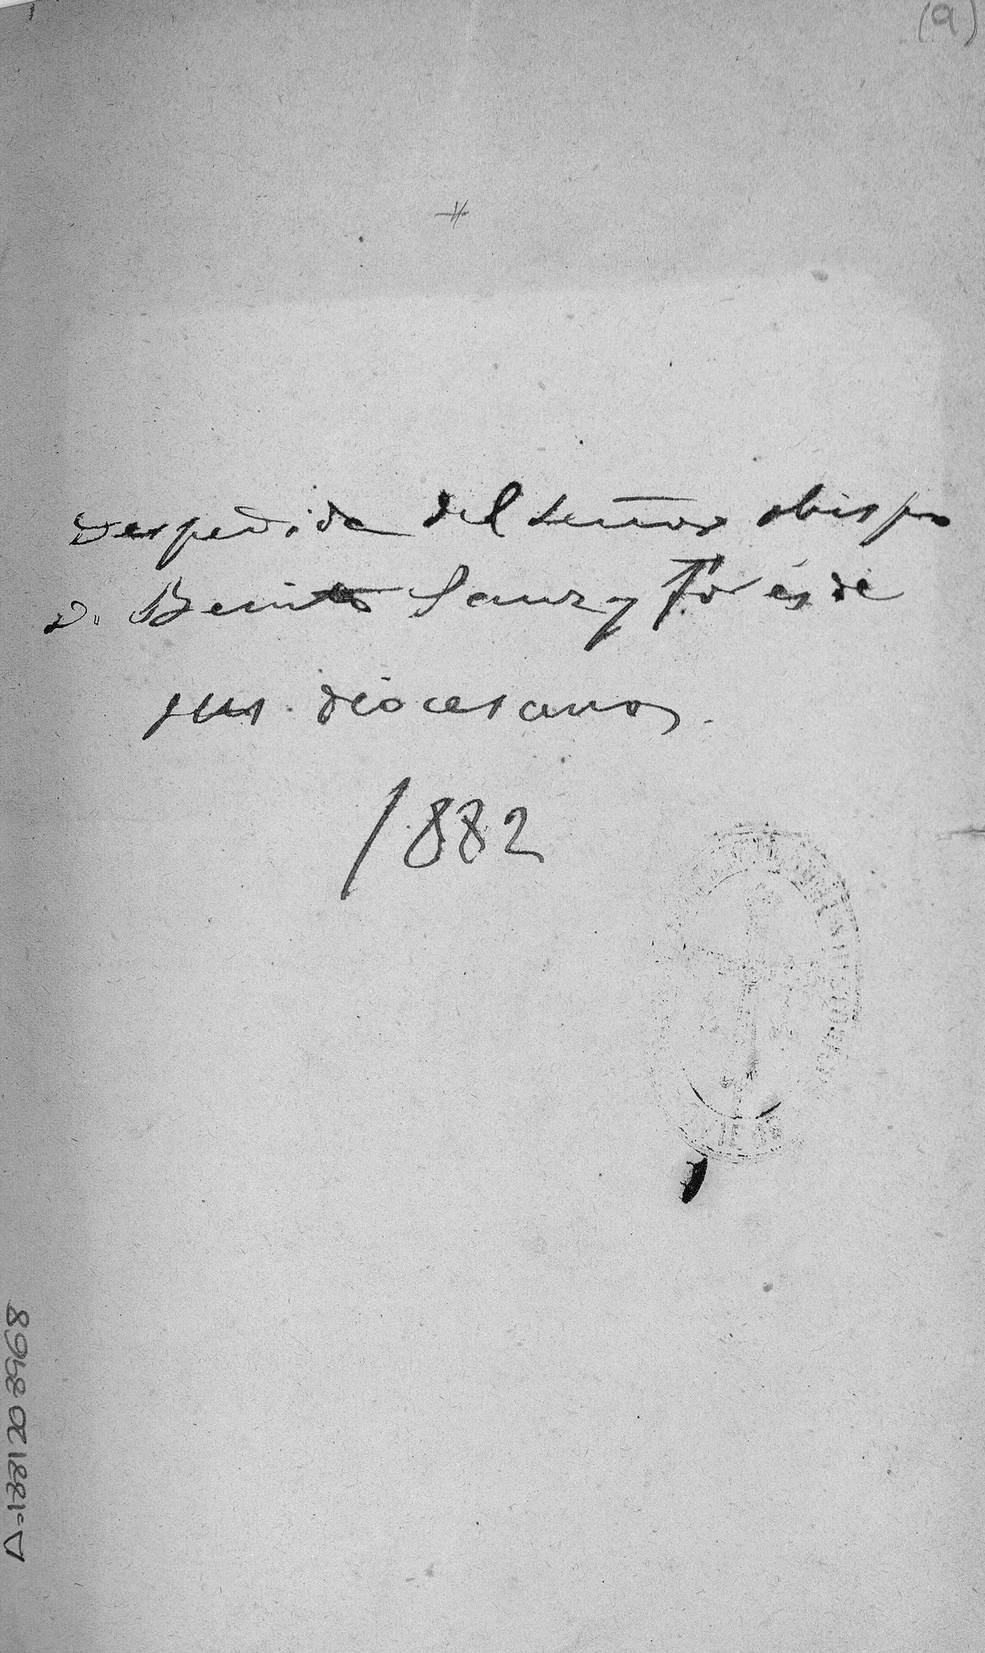 (a)
Despedida del señor obispo
D. Benito Sanz y Forés de
sus diocesanos.
1882